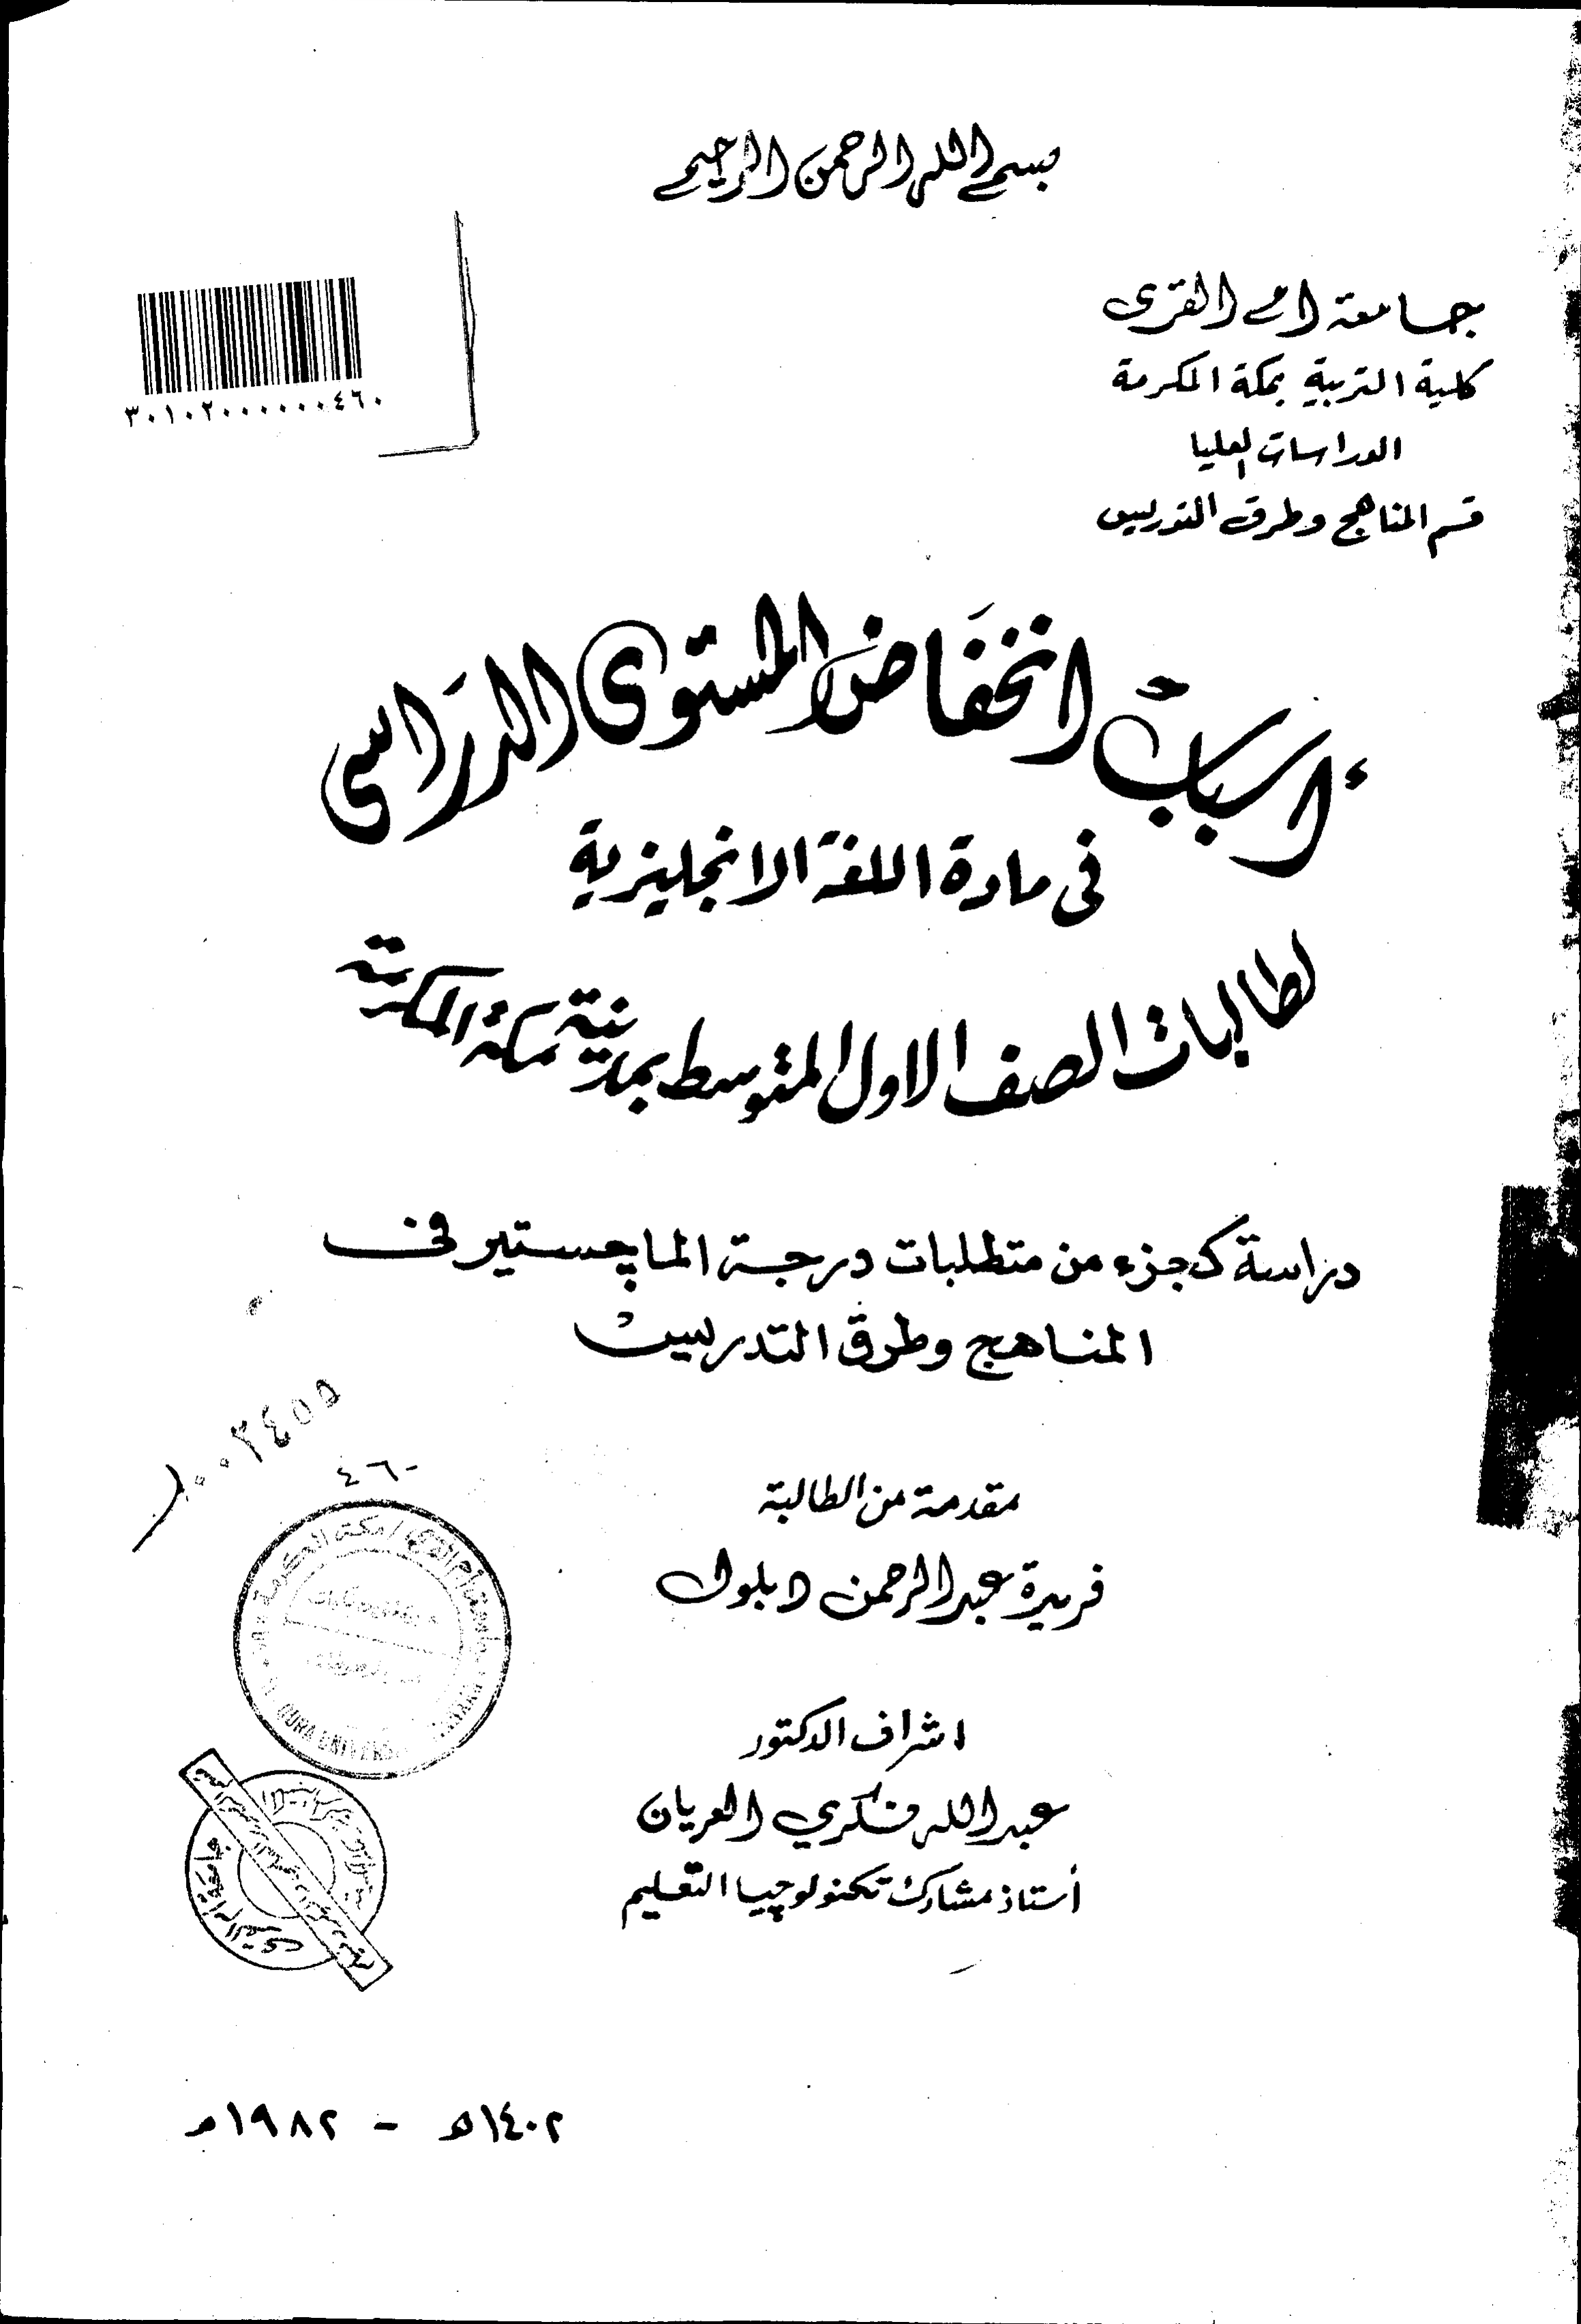 بسم الله الرحمن الرحيم
جامعة ام القرى
كلية التربية بمكة المكرمة
الدراسات العليا
قسم المناهج وطرق التدريس
٣٠١٠٢٠٠٠٠٠٠٤٦٠
أسباب انخفاض المستوى الدراسى
فى مادة اللغة الانجليزية
لطالبات الصف الاول المتوسط بمدينة مكة المكرمة
دراسة كجزء من متطلبات درجة الماچستير فى
المناهج وطرق التدريس
٤٦٠
مقدمة من الطالبة
فريدة عبد الرحمن دبلول
اشراف الدكتور
عبد الله فكري العريان
أستاذ مشارك تكنولوچيا التعليم
جامعة أم القرى / مكة المكرمة
QURA UNIVERS
جامعة أم القرى
١٤٠٢هـ - ١٩٨٢م